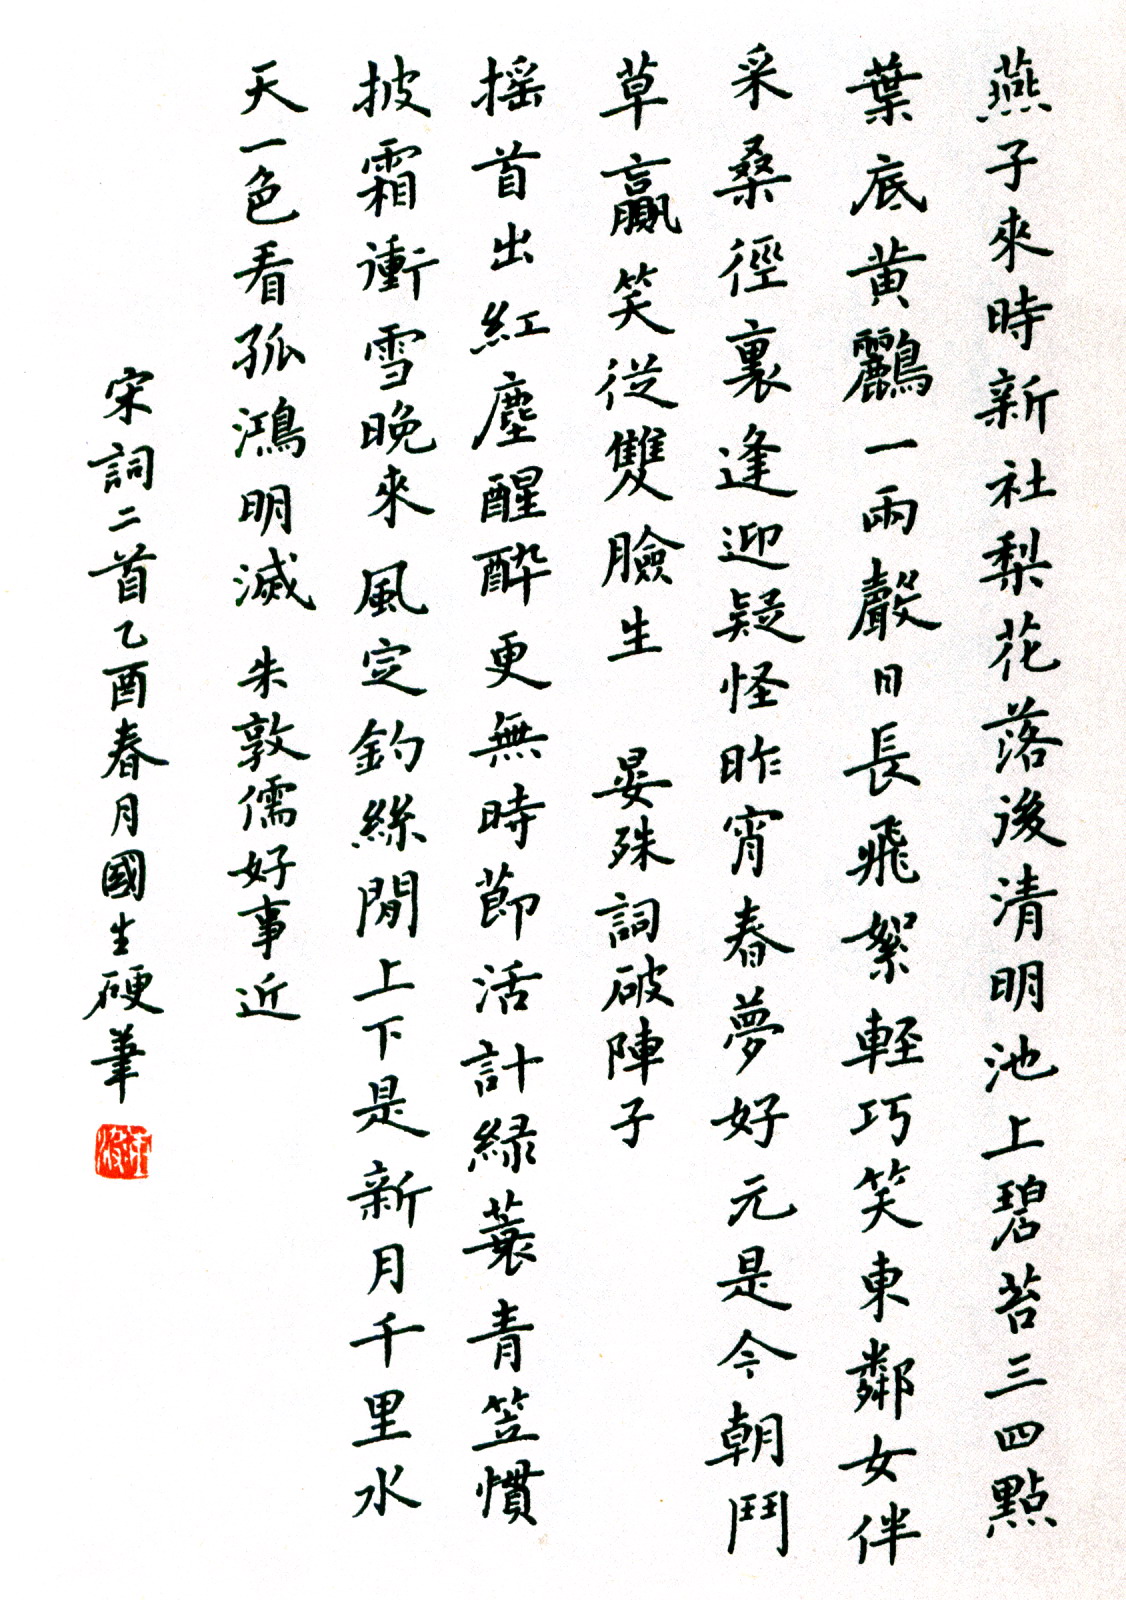 燕子來時新社梨花落後清明池上碧苔三四點
葉底黄鸝一兩聲日長飛絮輕巧笑東鄰女伴
采桑徑裏逢迎疑怪昨宵春夢好元是今朝鬥
草贏笑從雙臉生 晏殊詞破陣子
摇首出紅塵醒醉更無時節活計緑蓑青笠慣
披霜衝雪晚來風定釣絲閒上下是新月千里水
天一色看孤鴻明滅 朱敦儒好事近
宋詞二首乙酉春月國生硬筆